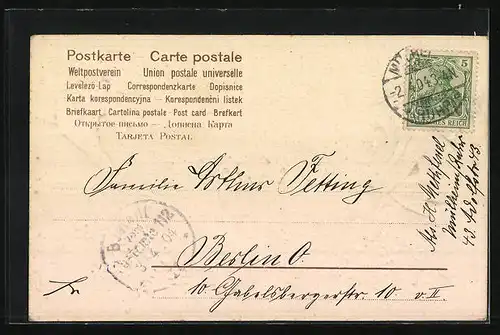 Postkarte Carte postale
Weltpostverein Union postale universelle
Levelező-Lap Correspondenzkarte Dopisnice
Karta korespondencyjna — Korespondenční lístek
Briefkaart Cartolina postale Post card Brefkort
Открытое письмо — Дописна Карта
TARJETA POSTAL
5
REICH
Familie Arthur Fetting
Berlin O
10 Gabelsbergerstr. 10 v. II.
112
4. 04